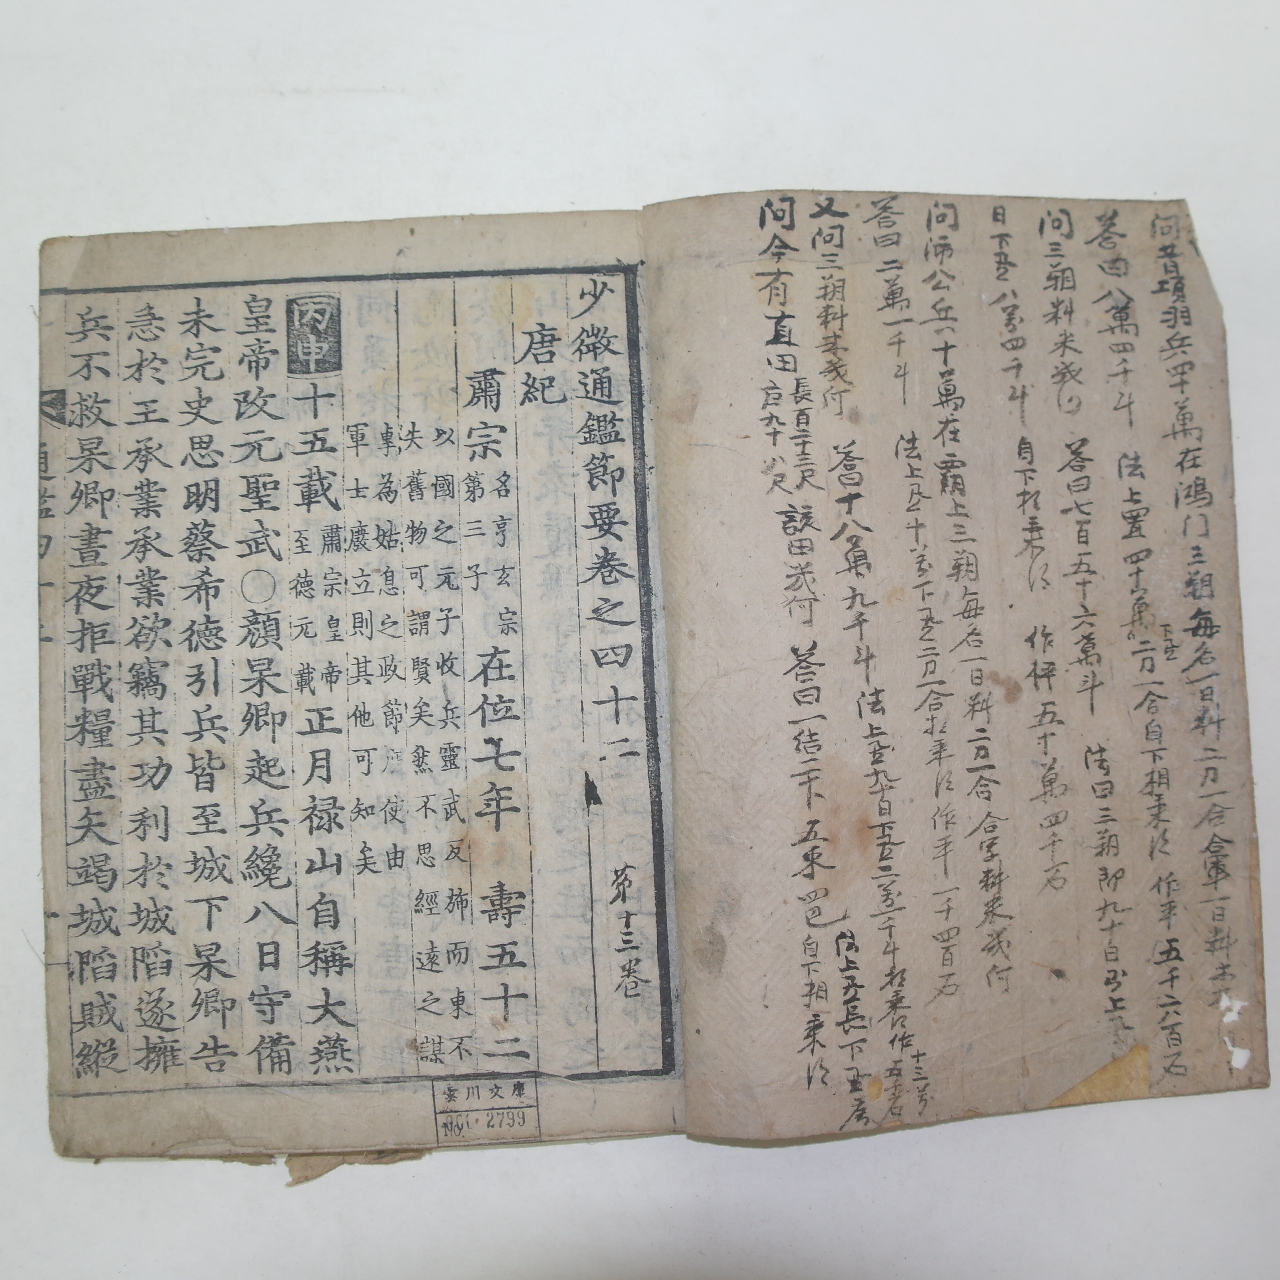 問昔項羽兵四十萬在鴻门三朔每名一日料二刀一合合軍一日料
答曰八萬四千斗 法上置四十萬下置二刀一合自下相乘 作平五千六百石
問三朔料米幾何 答曰七百五十六萬斗 法曰三朔卽九十日
日下 八万四千斗 自下相乘 作枰五十萬四千石
問沛公兵十萬在霸上三朔每名一日料二刀一合 合字料米幾何
答曰二萬一千斗 法上 十万下 二刀一合相乘 作平一千四百石
又問三朔料米幾何 答十八萬九千斗 法上 九十日下 二万一千斗相乘 作
十三万
問今有直田 長百二十三尺 廣九十八尺 該田幾何 答曰一結二十卜五束四巴 自下相乘
法上 長下 廣
少微通鑑節要卷之四十二 第十三卷
唐紀
肅宗 名亨玄宗第三子 在位七年 壽五十二
以國之元子收兵靈武反旆而東不
失舊物可謂賢矣然不思經遠之謀
卑為姑息之政節 使由
軍士廢立則其他可知矣
丙申 十五載 肅宗皇帝至德元載 正月禄山自稱大燕
皇帝改元聖武〇顏杲卿起兵纔八日守備
未完史思明蔡希德引兵皆至城下杲卿告
急於王承業承業欲竊其功利於城陷遂擁
兵不救杲卿晝夜拒戰糧盡矢竭城陷賊縱
通鑑四十二
雲川文庫
No. 2799